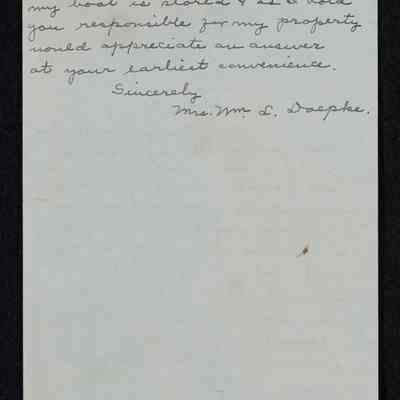 my boat is stored & as I hold
you responsible for my property
would appreciate an answer
at your earliest convenience.
Sincerely
Mrs. Wm. L. Doepke.